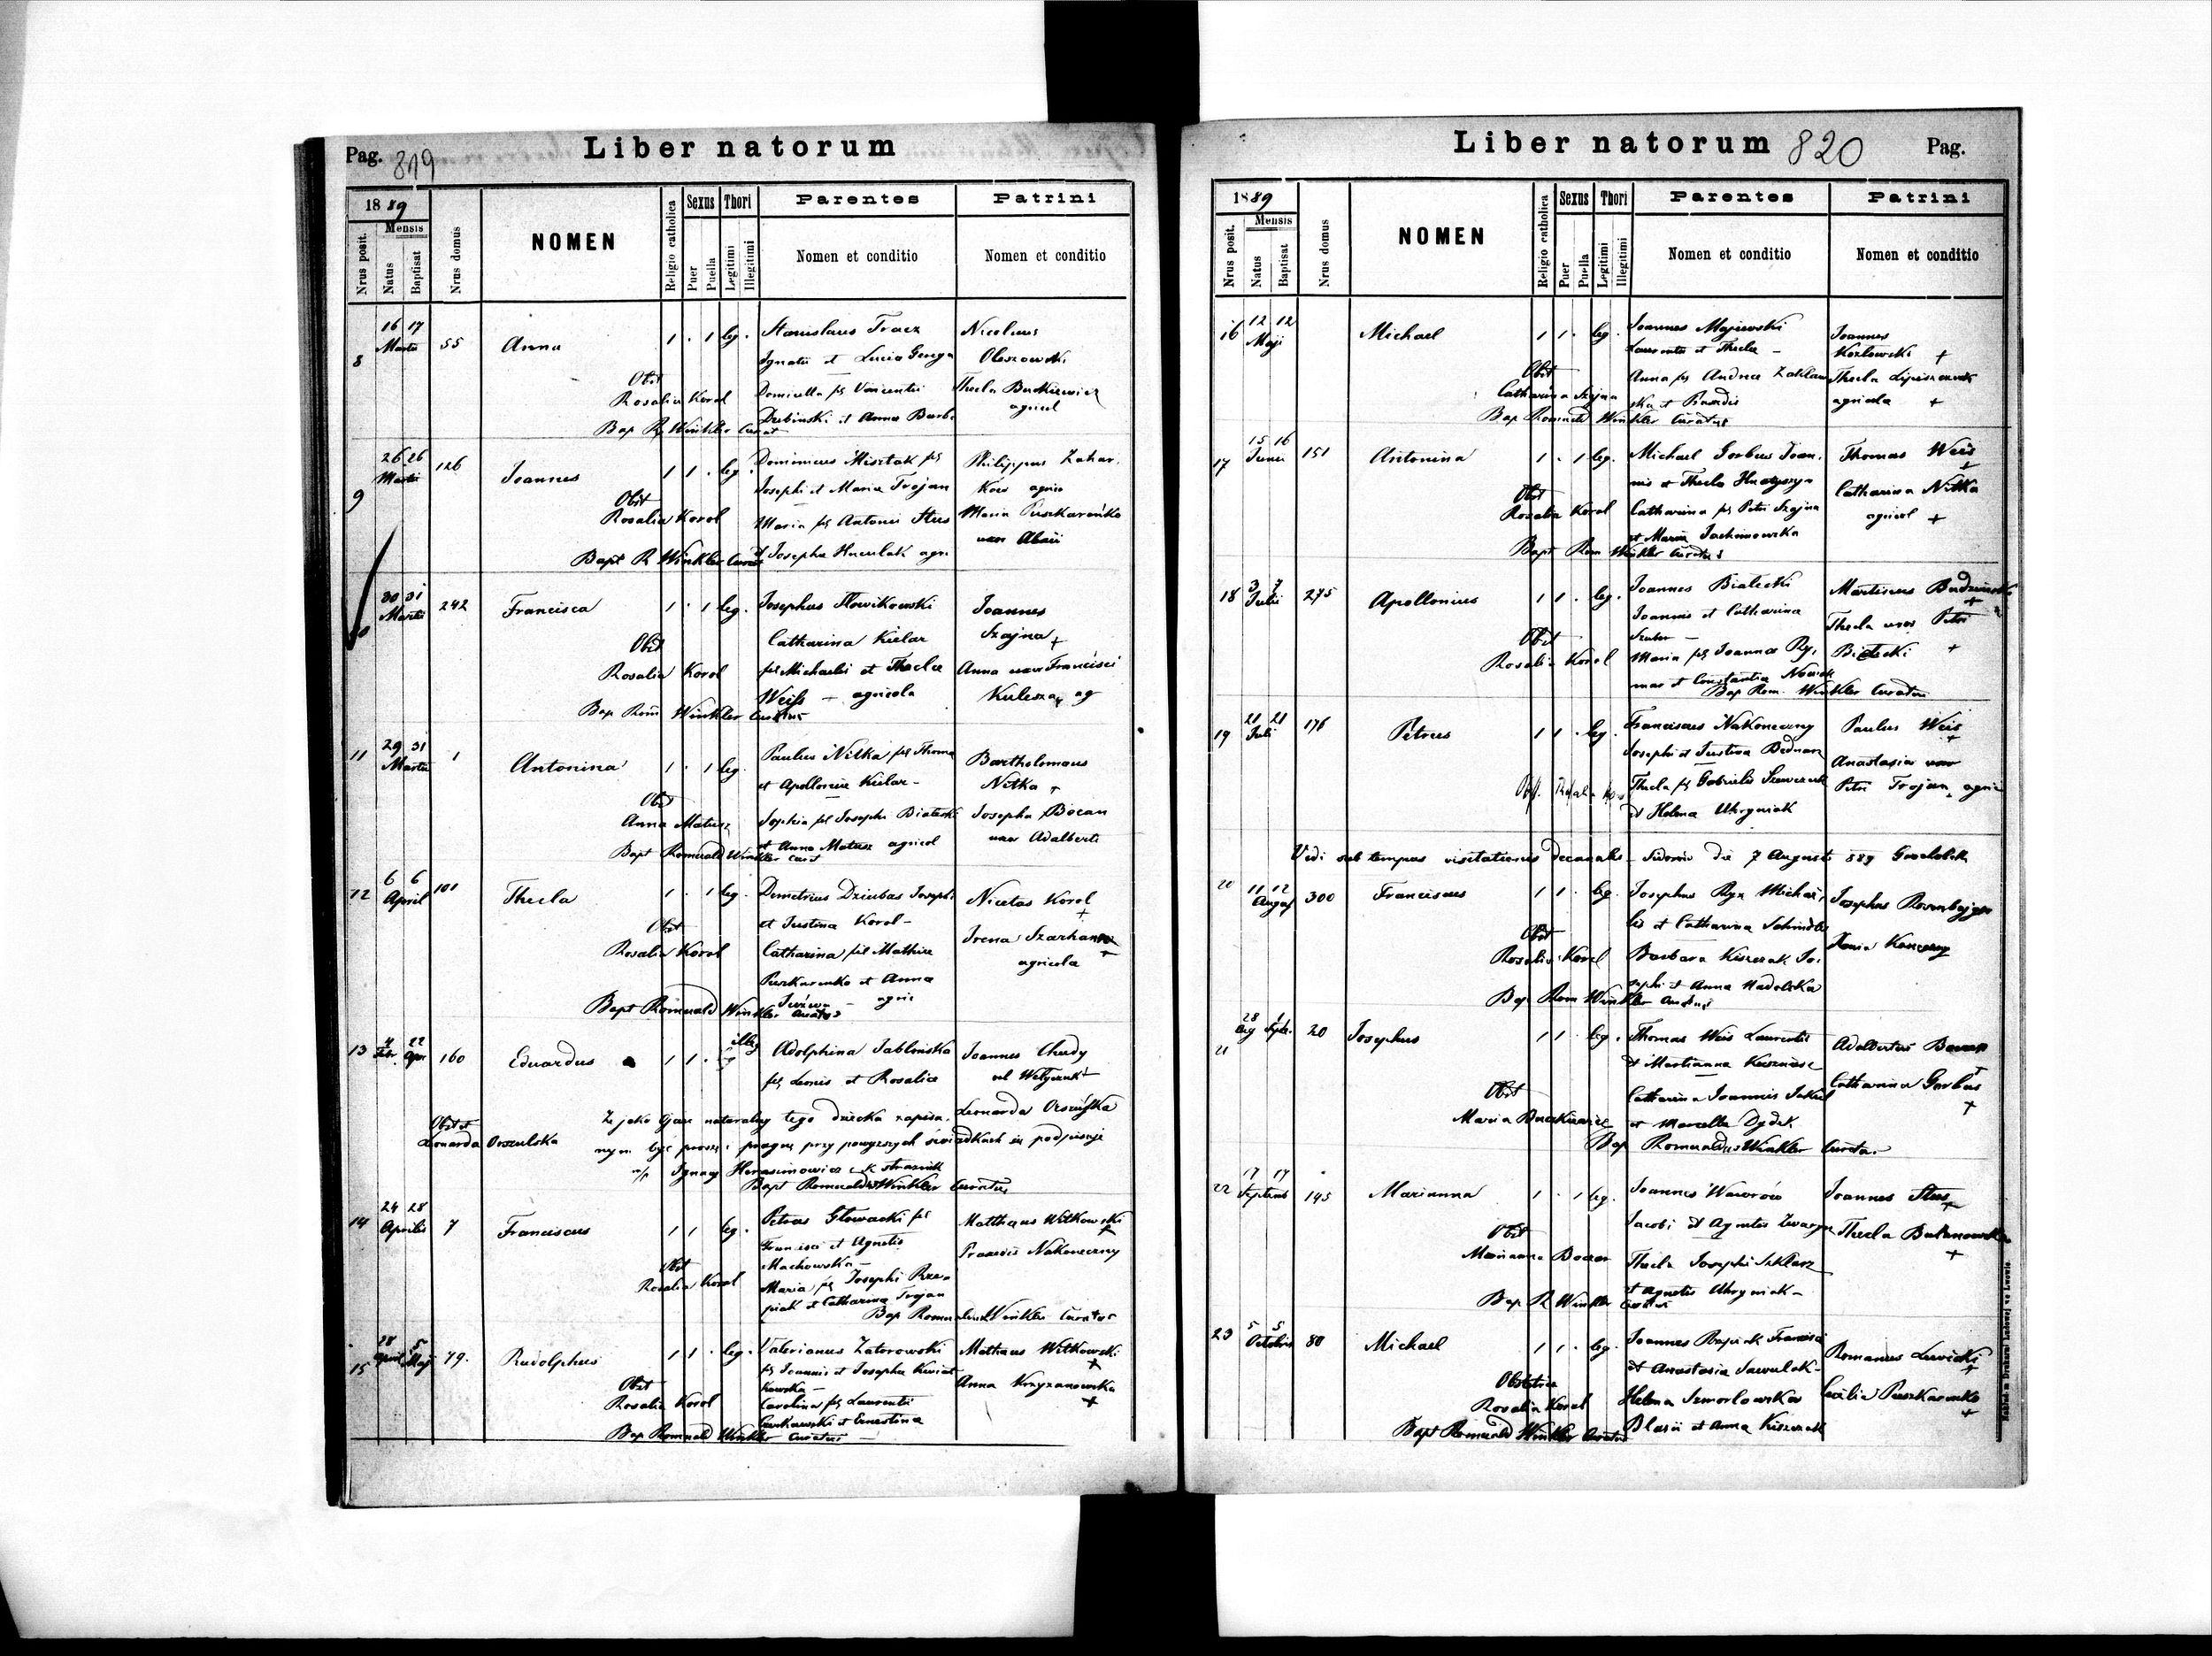 Pag. 819 Liber natorum
1889
Mensis
Nrus posit.
Natus
Baptisat
Nrus domus
NOMEN
Religio catholica
Sexus
Puer
Puella
Thori
Legitimi
Illegitimi
Parentes
Nomen et conditio
Patrini
Nomen et conditio
8 16 17 Martii 55 Anna 1 . 1 leg.
Stanislaus Tracz
Ignatii et Lucia
Domicella fil Vincentii
Dubinski et Anna
Nicolaus
Oleszowski
Thecla Buckiewicz
agricol
Obst
Rosalia Korol
Bap R Winkler Curat
9 26 26 Martii 126 Joannes 1 1 . leg.
Dominicus Misztak fil
Josephi et Maria Trojan
Maria fil Antonii Stus
et Josepha Huculak agri
Philippus Zahar
agric
Maria Puszkareńko
uxor
Obst
Rosalia Korol
Bapt R Winkler Curat
30 31 Martii 242 Francisca 1 . 1 leg.
Josephus Nowikowski
Catharina Kielar
fil Michaelis et Theclae
Weiss - agricola
Joannes
Szajna +
Anna uxor Francisci
Kulesza ag
Obst
Rosalia Korol
Bap Rom Winkler Curatus
11 29 31 Martii 1 Antonina 1 . 1 leg.
Paulus Nitka fil Thoma
et Apollonia Kielar -
Sophia fil Josephi Bialecki
et Anna Matusz agricol
Bartholomaus
Nitka +
Josepha Bocan
uxor Adalberti
Obst
Anna Matusz
Bapt Romuald Winkler curat
12 6 6 April 101 Thecla 1 . 1 leg.
Demetrius Dziubas Josephi
et Justina Korol -
Catharina fil Mathiae
Puszkarenko et Anna
- agric
Nicetas Korol
+
Irena
agricola
Obst
Rosalia Korol
Bapt Romuald Winkler Curatus
13 4 Febr. 22 Apr 160 Eduardus 1 1 . illeg
Adolphina Jablonska
fil Leonis et Rosalia
Joannes Chudy
Leonarda Orszulska
Obst et
Leonarda Orszulska
Że jako Ojciec naturalny tego dziecka zapisa.
nym być proszę i pragnę przy powyższych świadkach się podpisuję
Ignacy Herasimowicz strażnik
Bapt Romualdus Winkler Curatus
14 24 28 Aprilis 7 Franciscus 1 1 leg.
Petrus Glowacki fil
Francisci et Agnetis
Machowska -
Maria fil Josephi Rze-
piak et Catharina Trojan
Matthaus Witkowski
+
Praxedis Nakoneczny
Obst
Rosalia Korol
Bap Romuald Winkler Curatus
15 28 April 5 Maj 79. Rudolphus 1 1 . leg.
Valerianus Zatorowski
fil Joannis et Josepha Kwiat
kowska -
Carolina fil Laurentii
et Ernestina
Mathaus Witkowski
+
Anna Krzyzanowska
+
Obst
Rosalia Korol
Bap Romuald Winkler Curatus
Liber natorum 820 Pag.
1889
Mensis
Nrus posit.
Natus
Baptisat
Nrus domus
NOMEN
Religio catholica
Sexus
Puer
Puella
Thori
Legitimi
Illegitimi
Parentes
Nomen et conditio
Patrini
Nomen et conditio
16 12 12 Maji Michael 1 1 . leg.
Joannes Majewski
Laurentii et Thecla -
Anna fil Andrea Zaklaw
ska et Praxedis
Joannes
Kozlowski +
Thecla
agricola +
Obst
Catharina Szajna
Bap Romuald Winkler Curatus
17 15 16 Junii 151 Antonina 1 . 1 leg.
Michael Gorbus Joan.
nis et Thecla
Catharina fil Petri Szajna
et Maria Jachimowska
Thomas Weis
+
Catharina Nitka
agricol +
Obst
Rosalia Korol
Bapt Rom Winkler Curatus
18 3 7 Julii 275 Apollonius 1 1 . leg.
Joannes Bialecki
Joannis et Catharina
Szuber -
Maria fil Joannes Ry.
mar et Constantia Nowak
Martinus
+
Thecla uxor Petri
Bialecki +
Obst
Rosalia Korol
Bap Rom. Winkler Curatus
19 21 21 Juli 176 Petrus 1 1 . leg.
Franciscus Nakoneczny
Josephi et Justina Bednarz
Thecla fil Gabrielis Szewczuk
et Helena Uhryniak
Paulus Weis
+
Anastasia uxor
Petri Trojan agric
Obst. Rosalia
Vidi sub tempus visitationis Decanalis - Sidorów die 7 Augusti 889
20 11 12 August 300 Franciscus 1 1 . leg.
Josephus Ryx Michae
lis et Catharina Schindler
Barbara Kiszczak Jo.
sephi et Anna Nadolska
Josephus
Xenia
Obst
Rosalia Korol
Bap Rom Winkler Curatus
21 28 Aug 1 Septe. 20 Josephus 1 1 . leg.
Thomas Weis Laurentii
et Marianna
Catharina Joannis
et Marcella Dydek
Adalbertus Bocan
+
Catharina Gorbus
+
Obst
Maria Buczkiewicz
Bap Romualdus Winkler Curatus
22 17 17 Septemb 145 Marianna 1 . 1 leg.
Joannes Waworów
Jacobi et Agnetis
Thecla Josephi Szklarz
et Agnetis Uhryniak -
Joannes Stus
+
Thecla
+
Obst
Marianna Bocan
Bap R Winkler Curatus
23 5 5 Octobris 80 Michael 1 1 . leg.
Joannes Francisci
et Anastasia Sawulak -
Helena Szmorlowska
Blasii et Anna Kiszczak
Romanus Lewicki
+
Cecilia Puszkarenko
+
Obstetrix
Rosalia Korol
Bapt Romuald Winkler Curatus